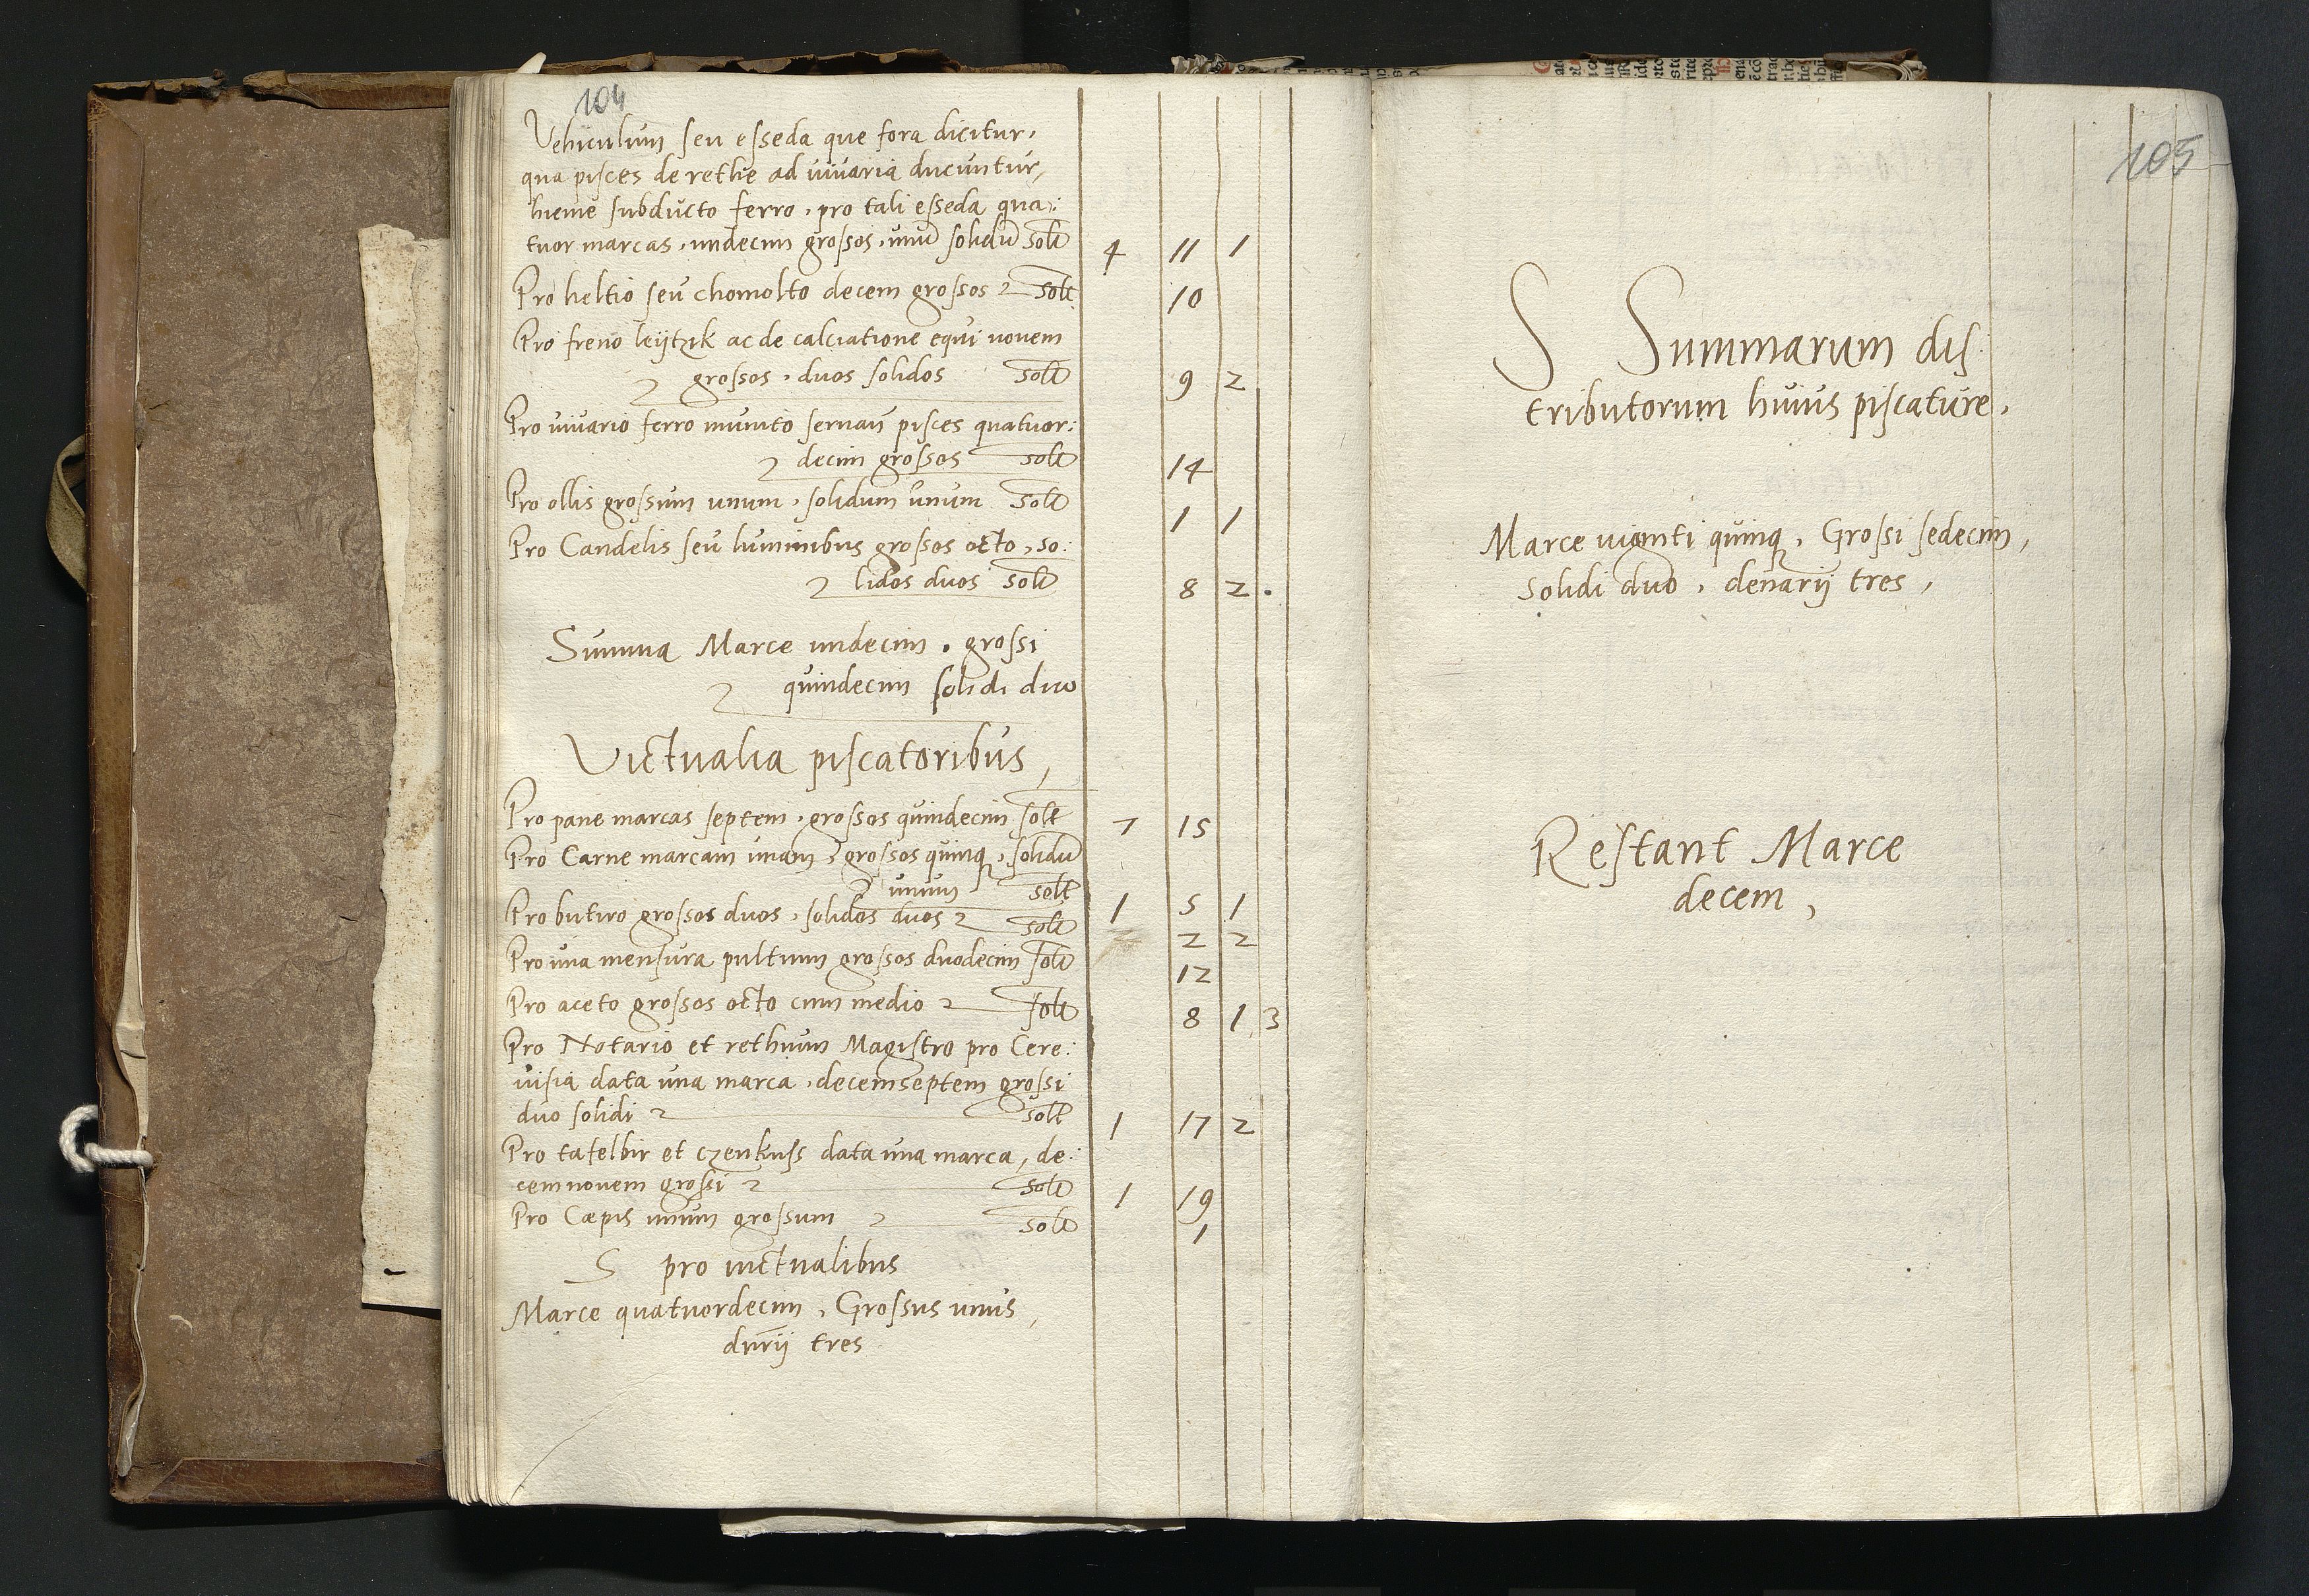 104
Vehiculum seu esseda que fora dicitur,
qua pisces de rethe ad viuaria ducuntur,
hieme subducto ferro, pro tali esseda qua:
tuor marcas, undecim grossos, unū solidū solt 4 11 1
Pro heltio seu chomolto decem grossos solt 10
Pro freno leijtzik ac de calciatione equi novem
grossos, duos solidos solt 9 2
Pro viuario ferro munito seruan̄ pisces quatuor:
decim grossos solt 14
Pro ollis grossum unum, solidum unum solt 1 1
Pro Candelis seu luminibus grossos octo, so:
lidos duos solt 8 2 .
Summa Marce undecim. grossi
quindecim solidi duo
Victualia piscatoribus,
Pro pane marcas septem, grossos quindecim solt 7 15
Pro Carne marcam unam, grossos quinq, solidū
unum solt 1 5 1
Pro butiro grossos duos, solidos duos solt 2 2
Pro una mensura pultium grossos duodecim solt 12
Pro aceto grossos octo cum medio solt 8 1 3
Pro Notario et rethium Magistro pro Cere:
uisia data una marca, decemseptem grossi
duo solidi solt 1 17 2
Pro tafelbir et czenkuss data una marca, de:
cemnovem grossi solt 1 19
Pro Cæpis unum grossum solt 1
S pro victualibus
Marce quatuordecim, Grossus unus,
dnrij tres
105
S Summarum dis:
tributorum huius piscature,
Marce viginti quinq, Grossi sedecim,
solidi duo, denarij tres,
Restant Marce
decem,